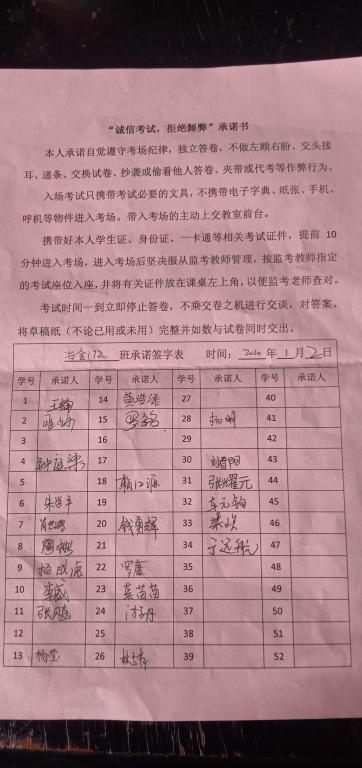 “诚信考试，拒绝舞弊”承诺书
本人承诺自觉遵守考场纪律，独立答卷，不做左顾右盼、交头接
耳、递条、交换试卷、抄袭或偷看他人答卷、夹带或代考等作弊行为。
入场考试只携带考试必要的文具，不携带电子字典、纸张、手机、
呼机等物件进入考场。带入考场的主动上交教室前台。
携带好本人学生证、身份证、一卡通等相关考试证件，提前 10
分钟进入考场，进入考场后坚决服从监考教师管理，按监考教师指定
的考试座位入座，并将有关证件放在课桌左上角，以便监考老师查对。
考试时间一到立即停止答卷，不乘交卷之机进行交谈，对答案。
将草稿纸（不论已用或未用）完整并如数与试卷同时交出。
冶金172 班承诺签字表 时间：2020 年 1 月 2 日
学号 承诺人 学号 承诺人 学号 承诺人 学号 承诺人
1 14 27 40
2 15 罗铭 28 杨明 41
3 16 29 42
4 17 30 43
5 18 31 张耀元 44
6 19 32 45
7 20 33 46
8 21 34 于远航 47
9 杨成虎 22 罗康 35 48
10 李威 23 莫苗苗 36 49
11 24 游丹 37 50
12 25 38 51
13 杨莹 26 39 52